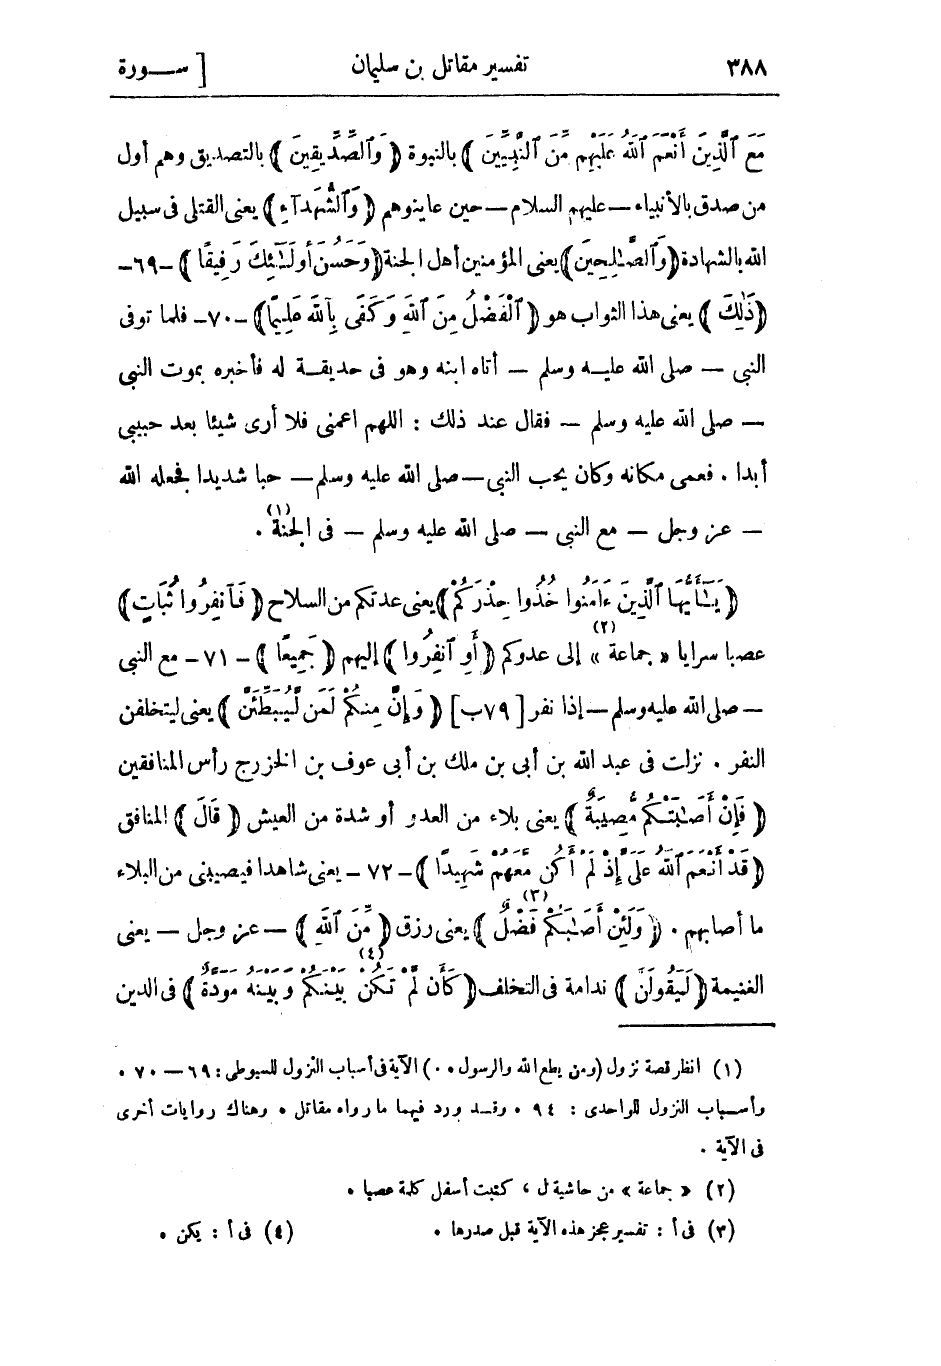 ٣٨٨ تفسير مقاتل بن سليمان [ ســورة
مَعَ ٱلَّذِينَ أَنْعَمَ ٱللَّهُ عَلَيْهِم مِّنَ ٱلنَّبِيِّينَ ) بالنبوة ( وَٱلصِّدِّيقِينَ ) بالتصديق وهم أول
من صدق بالأنبياء — عليهم السلام — حين عاينوهم ( وَٱلشُّهَدَآءِ ) يعنى القتلى فى سبيل
الله بالشهادة ( وَٱلصَّـٰلِحِينَ ) يعنى المؤمنين أهل الجنة ( وَحَسُنَ أُولَـٰٓئِكَ رَفِيقًا ) - ٦٩ -
( ذَٰلِكَ ) يعنى هذا الثواب هو ( ٱلْفَضْلُ مِنَ ٱللَّهِ وَكَفَى بِٱللَّهِ عَلِيمًا ) - ٧٠ - فلما توفى
النبى — صلى الله عليــه وسلم — أتاه ابنه وهو فى حديقــة له فأخبره بموت النبى
— صلى الله عليه وسلم — فقال عند ذلك : اللهم اعمنى فلا أرى شيئا بعد حبيبى
أبدا . فعمى مكانه وكان يحب النبى — صلى الله عليه وسلم — حبا شديدا فجعله الله
— عز وجل — مع النبى — صلى الله عليه وسلم — فى الجنة (١) .
( يَـٰٓأَيُّهَا ٱلَّذِينَ ءَامَنُوا خُذُوا حِذْرَكُمْ ) يعنى عدتكم من السلاح ( فَٱنفِرُوا ثُبَاتٍ )
عصبا سرايا « جماعة » (٢) إلى عدوكم ( أَوِ ٱنفِرُوا ) إليهم ( جَمِيعًا ) - ٧١ - مع النبى
— صلى الله عليه وسلم — إذا نفر [ ٧٩ب ] ( وَإِنَّ مِنكُمْ لَمَن لَّيُبَطِّئَنَّ ) يعنى ليتخلفن
النفر . نزلت فى عبد الله بن أبى بن ملك بن أبى عوف بن الخزرج رأس المنافقين
( فَإِنْ أَصَـٰبَتْكُم مُّصِيبَةٌ ) يعنى بلاء من العدو أو شدة من العيش ( قَالَ ) المنافق
( قَدْ أَنْعَمَ ٱللَّهُ عَلَىَّ إِذْ لَمْ أَكُن مَّعَهُمْ شَهِيدًا ) - ٧٢ - يعنى شاهدا فيصيبنى من البلاء
ما أصابهم . ( وَلَئِنْ أَصَـٰبَكُمْ فَضْلٌ (٣) ) يعنى رزق ( مِّنَ ٱللَّهِ ) — عز وجل — يعنى
الغنيمة ( لَيَقُولَنَّ ) ندامة فى التخلف ( كَأَن لَّمْ تَكُنْ (٤) بَيْنَكُمْ وَبَيْنَهُ مَوَدَّةٌ ) فى الدين
(١) انظر قصة نزول (ومن يطع الله والرسول ٠٠) الآية فى أسباب النزول للسيوطى : ٦٩ — ٧٠ .
وأســباب النزول للواحدى : ٩٤ . وقــد ورد فيهما ما رواه مقاتل . وهناك روايات أخرى
فى الآية .
(٢) « جماعة » من حاشية ل ، كتبت أسفل كلمة عصبا .
(٣) فى أ : تفسير عجز هذه الآية قبل صدرها . (٤) فى أ : يكن .